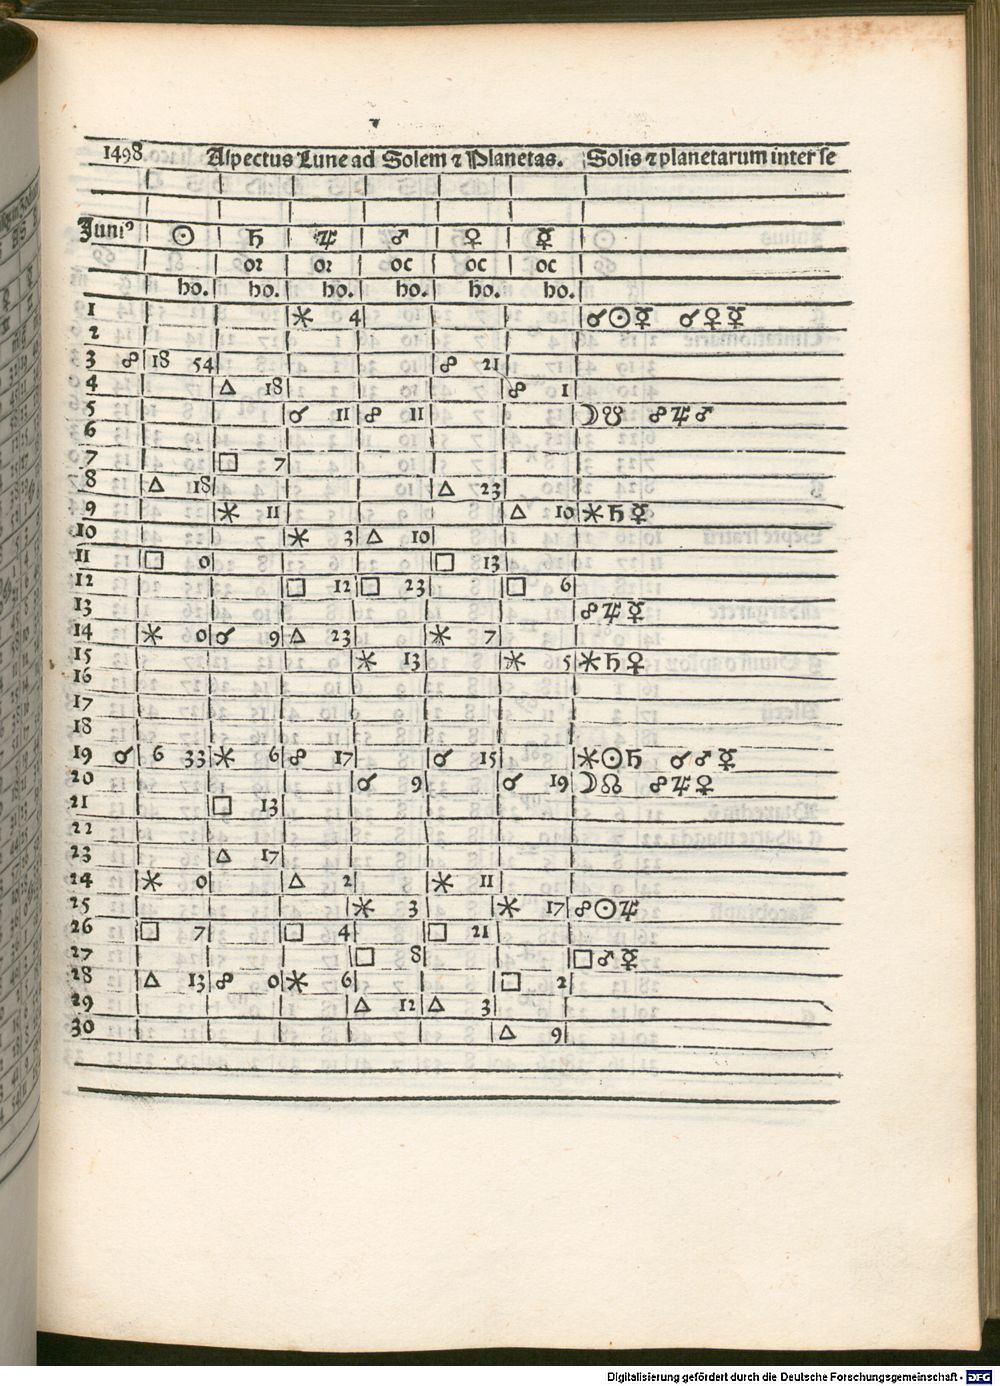 1498 Aspectus Lune ad Solem ⁊ Planetas. Solis ⁊ planetarum inter se
Juniꝰ ☉ ♄ ♃ ♂ ♀ ☿
oꝛ oꝛ oc oc oc
ho. ho. ho. ho. ho. ho.
1 ⚹ 4 ☌☉☿ ☌♀☿
2
3 ☍ 18 54 ☍ 21
4 △ 18 ☍ 1
5 ☌ 11 ☍ 11 ☽☋ ☍♃♂
6
7 □ 7
8 △ 18 △ 23
9 ⚹ 11 △ 10 ⚹♄☿
10 ⚹ 3 △ 10
11 □ 0 □ 13
12 □ 12 □ 23 □ 6
13 ☍♃☿
14 ⚹ 0 ☌ 9 △ 23 ⚹ 7
15 ⚹ 13 ⚹ 5 ⚹♄♀
16
17
18
19 ☌ 6 33 ⚹ 6 ☍ 17 ☌ 15 ⚹☉♄ ☌♂☿
20 ☌ 9 ☌ 19 ☽☊ ☍♃♀
21 □ 13
22
23 △ 17
24 ⚹ 0 △ 2 ⚹ 11
25 ⚹ 3 ⚹ 17 ☍☉♃
26 □ 7 □ 4 □ 21
27 □ 8 □♂☿
28 △ 13 ☍ 0 ⚹ 6 □ 2
29 △ 12 △ 3
30 △ 9
Digitalisierung gefördert durch die Deutsche Forschungsgemeinschaft - DFG